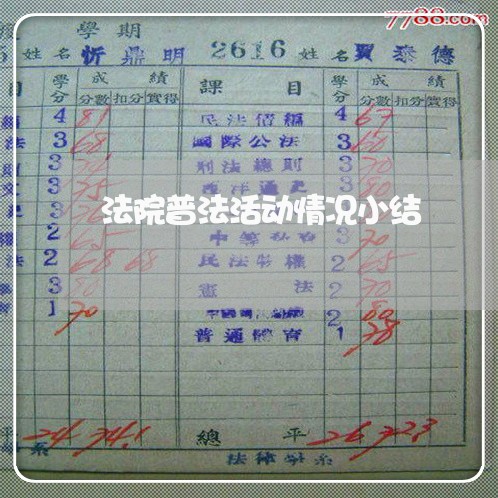 7788.com
學期
5 姓名 忻鼎明 2616 姓名 賈泰德
目 學分 成績 課目 學分 成績
分數 扣分 實得 分數 扣分 實得
4 81 民法債編 4 67
法 3 68 國際公法 3 60
3 刑法總則 3 70
3 75 西洋通史 3 80
法院普法活动情况小结
2 65 3 70
法 2 68 68 民法物權 2 65
3 80 憲法 2 70
1 70 2 80
普通體育 1 78
平 24 74.1 總平 26 72.3
系 法律學系